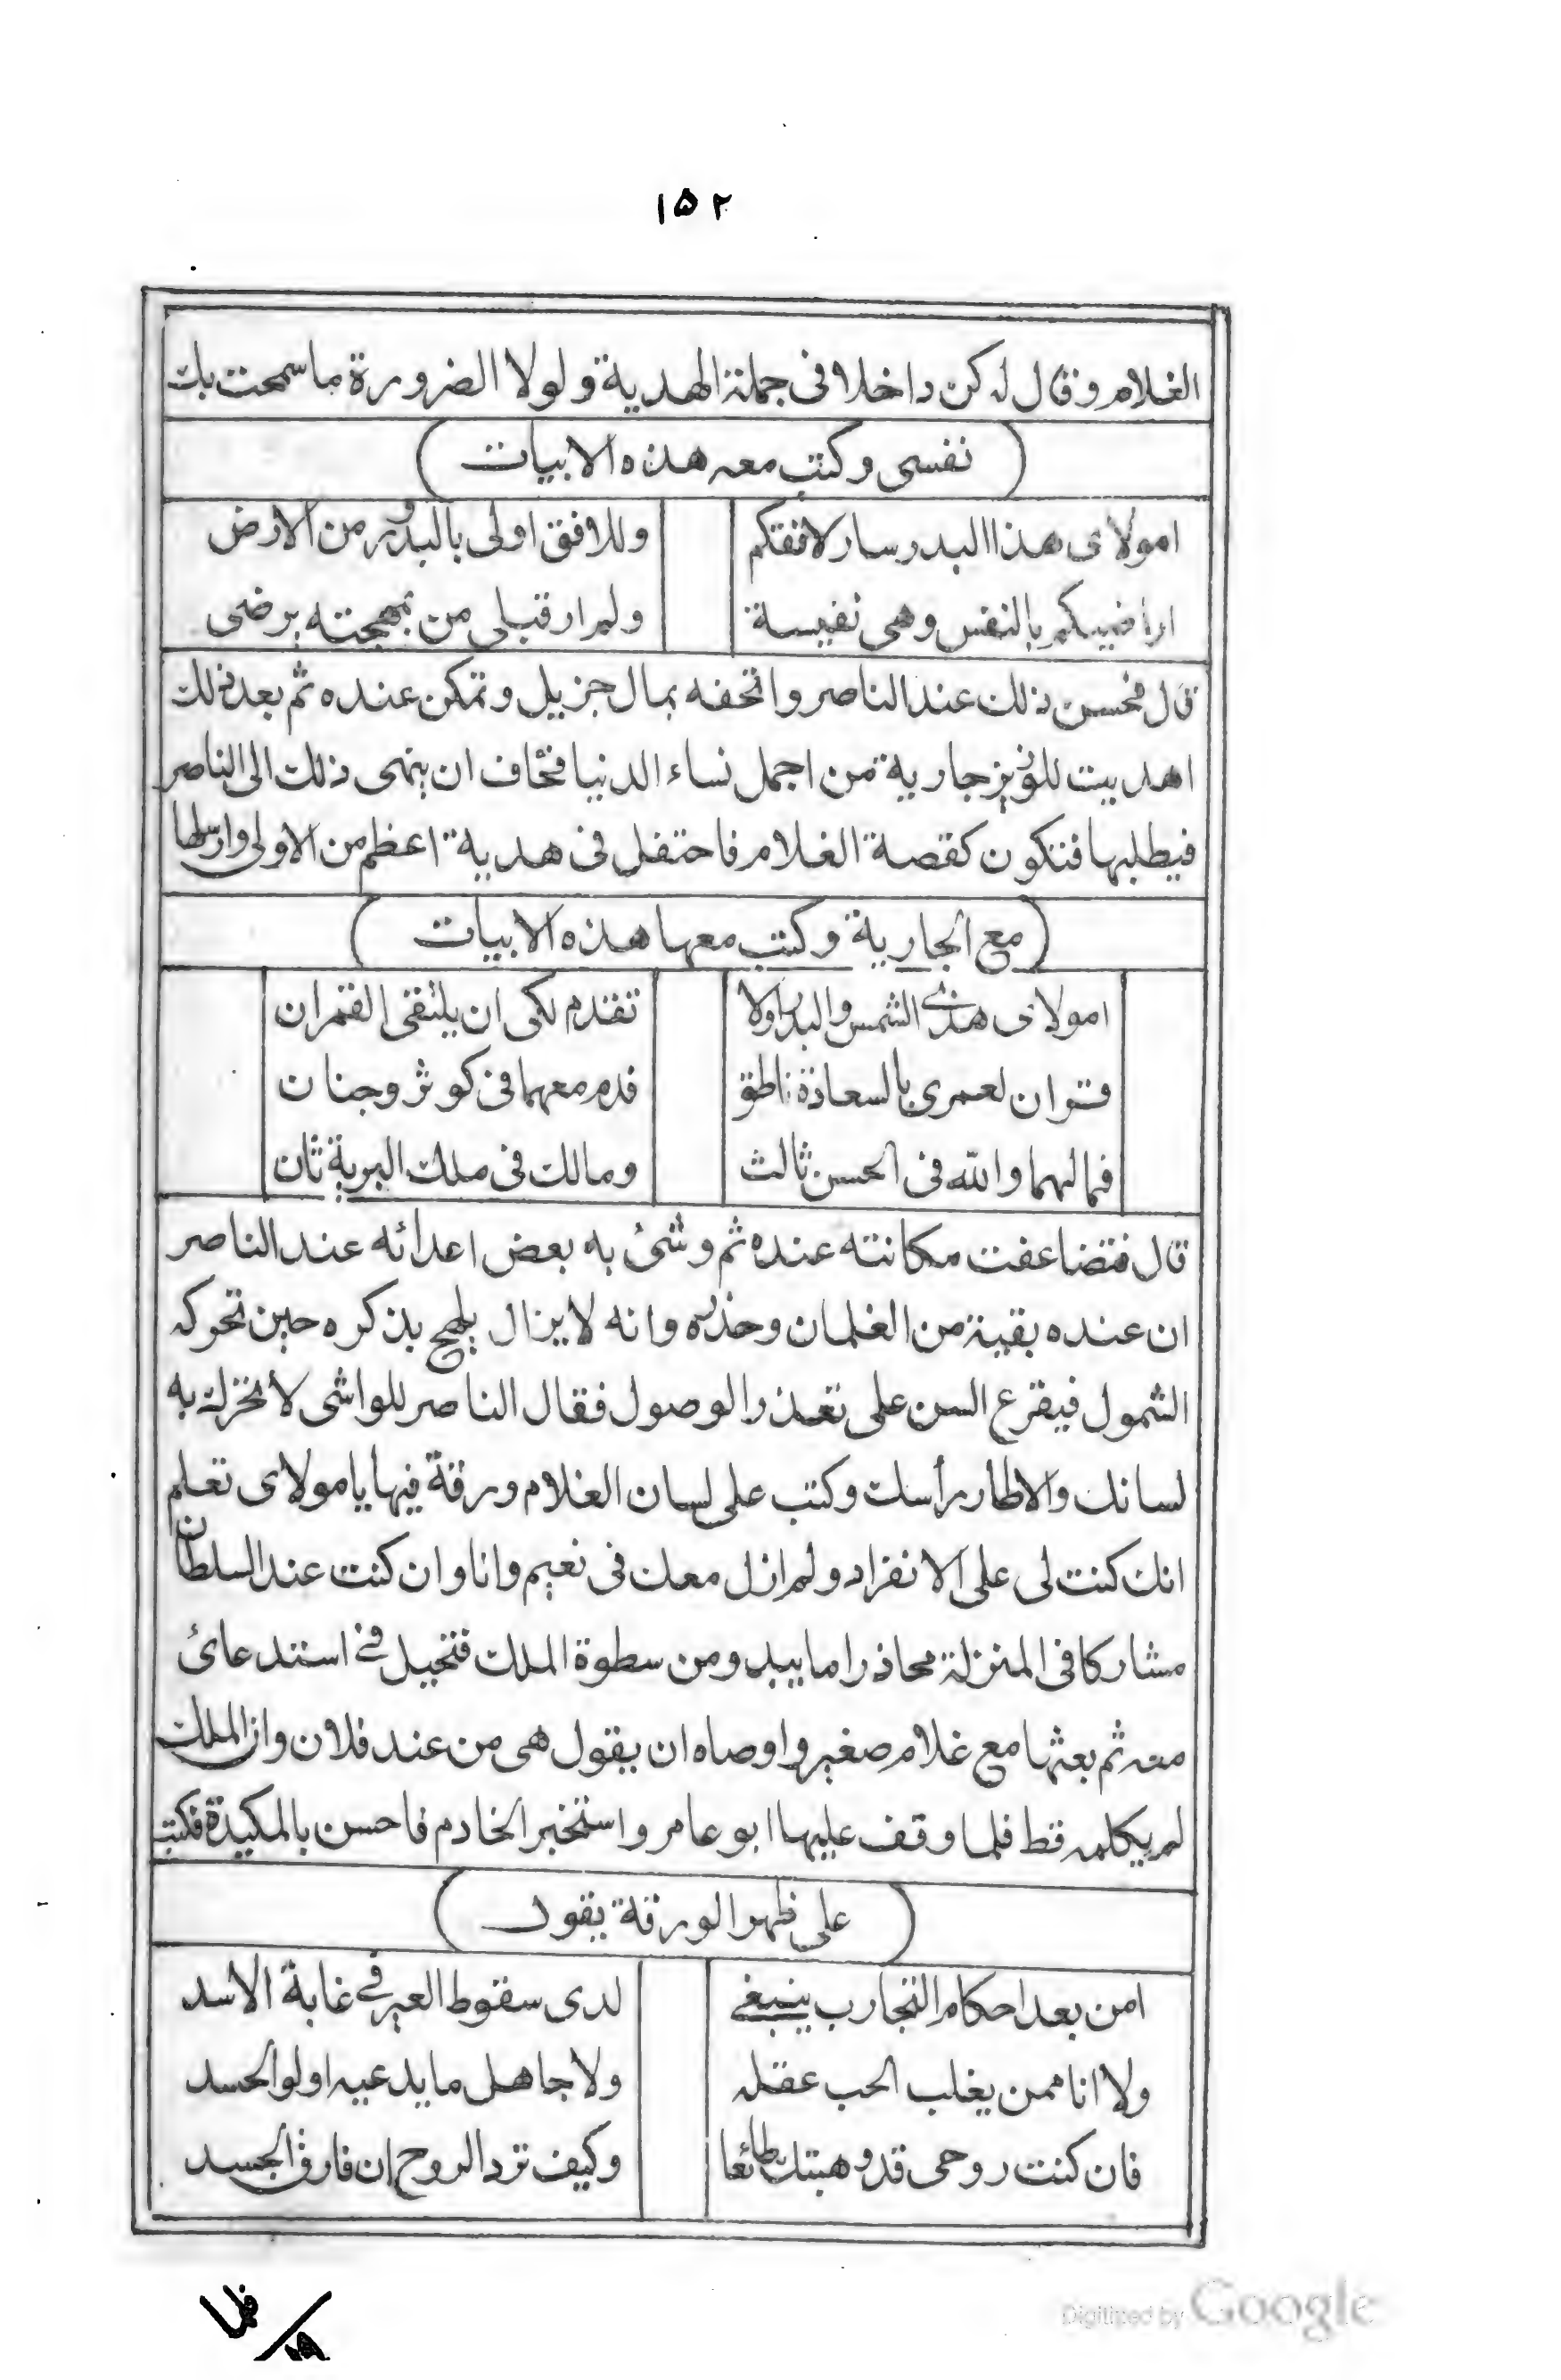 ١٥٢
الغلام وقال له كن داخلا فى جملة الهدية ولولا الضرورة ما سمحت بك
(نفسى وكتب معه هذه الابيات)
امولاى هذا البدر سار لافقكم وللافق اولى بالبدور من الارض
اراضيكم بالنفس وهى نفيسة ولم ار قبلى من بمهجته يرضى
قال فحسن ذلك عند الناصر واتحفه بمال جزيل وتمكن عنده ثم بعد ذلك
اهديت للوزير جارية من اجمل نساء الدنيا فخاف ان ينهى ذلك الى الناصر
فيطلبها فتكون كقصة الغلام فاحتفل فى هدية اعظم من الاولى وارسلها
(مع الجارية وكتب معها هذه الابيات)
امولاى هذى الشمس والبدر اولا تقدم لكى ان يلتقى القمران
قران لعمرى بالسعادة ناطق فدم معهما فى كوثر وجنان
فما لهما والله فى الحسن ثالث ومالك فى ملك البرية ثان
قال فتضاعفت مكانته عنده ثم وشئ به بعض اعدائه عند الناصر
ان عنده بقية من الغلمان وحذره وانه لا يزال يلهج بذكره حين تحركه
الشمول فيقرع السن على تعذر الوصول فقال الناصر للواشى لا تحرك به
لسانك والا طار رأسك وكتب على لسان الغلام ورقة فيها يا مولاى تعلم
انك كنت لى على الانفراد ولم ازل معك فى نعيم وانا وان كنت عند السلطان
مشاركا فى المنزلة محاذرا ما يبدو من سطوة الملك فتحيل فى استدعائ
معه ثم بعثها مع غلام صغير واوصاه ان يقول هى من عند فلان وان الملك
لم يكلمه قط فلما وقف عليها ابو عامر واستخبر الخادم فاحسن بالمكيدة فكتب
(على ظهر الورقة يقول)
امن بعد احكام التجارب ينبغى لدى سقوط العير فى غابة الاسد
ولا انا ممن يغلب الحب عقله ولا جاهل ما يدعيه اولو الحسد
فان كنت روحى قد وهبتك طائعا وكيف ترد الروح ان فارق الجسد
فلما
Digitized by Google